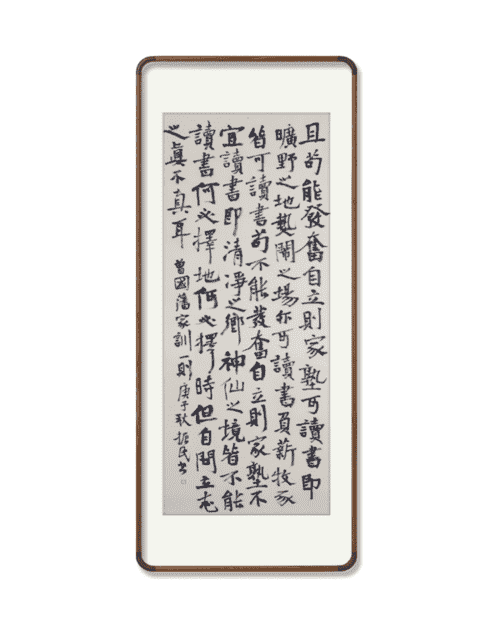 且苟能發奮自立則家塾可讀書即
曠野之地熱鬧之場亦可讀書負薪牧豕
皆可讀書苟不能發奮自立則家塾不
宜讀書即清淨之鄉神仙之境皆不能
讀書何必擇地何必擇時但自問立志
之眞不真耳 曾國藩家訓一則庚子耿振民书